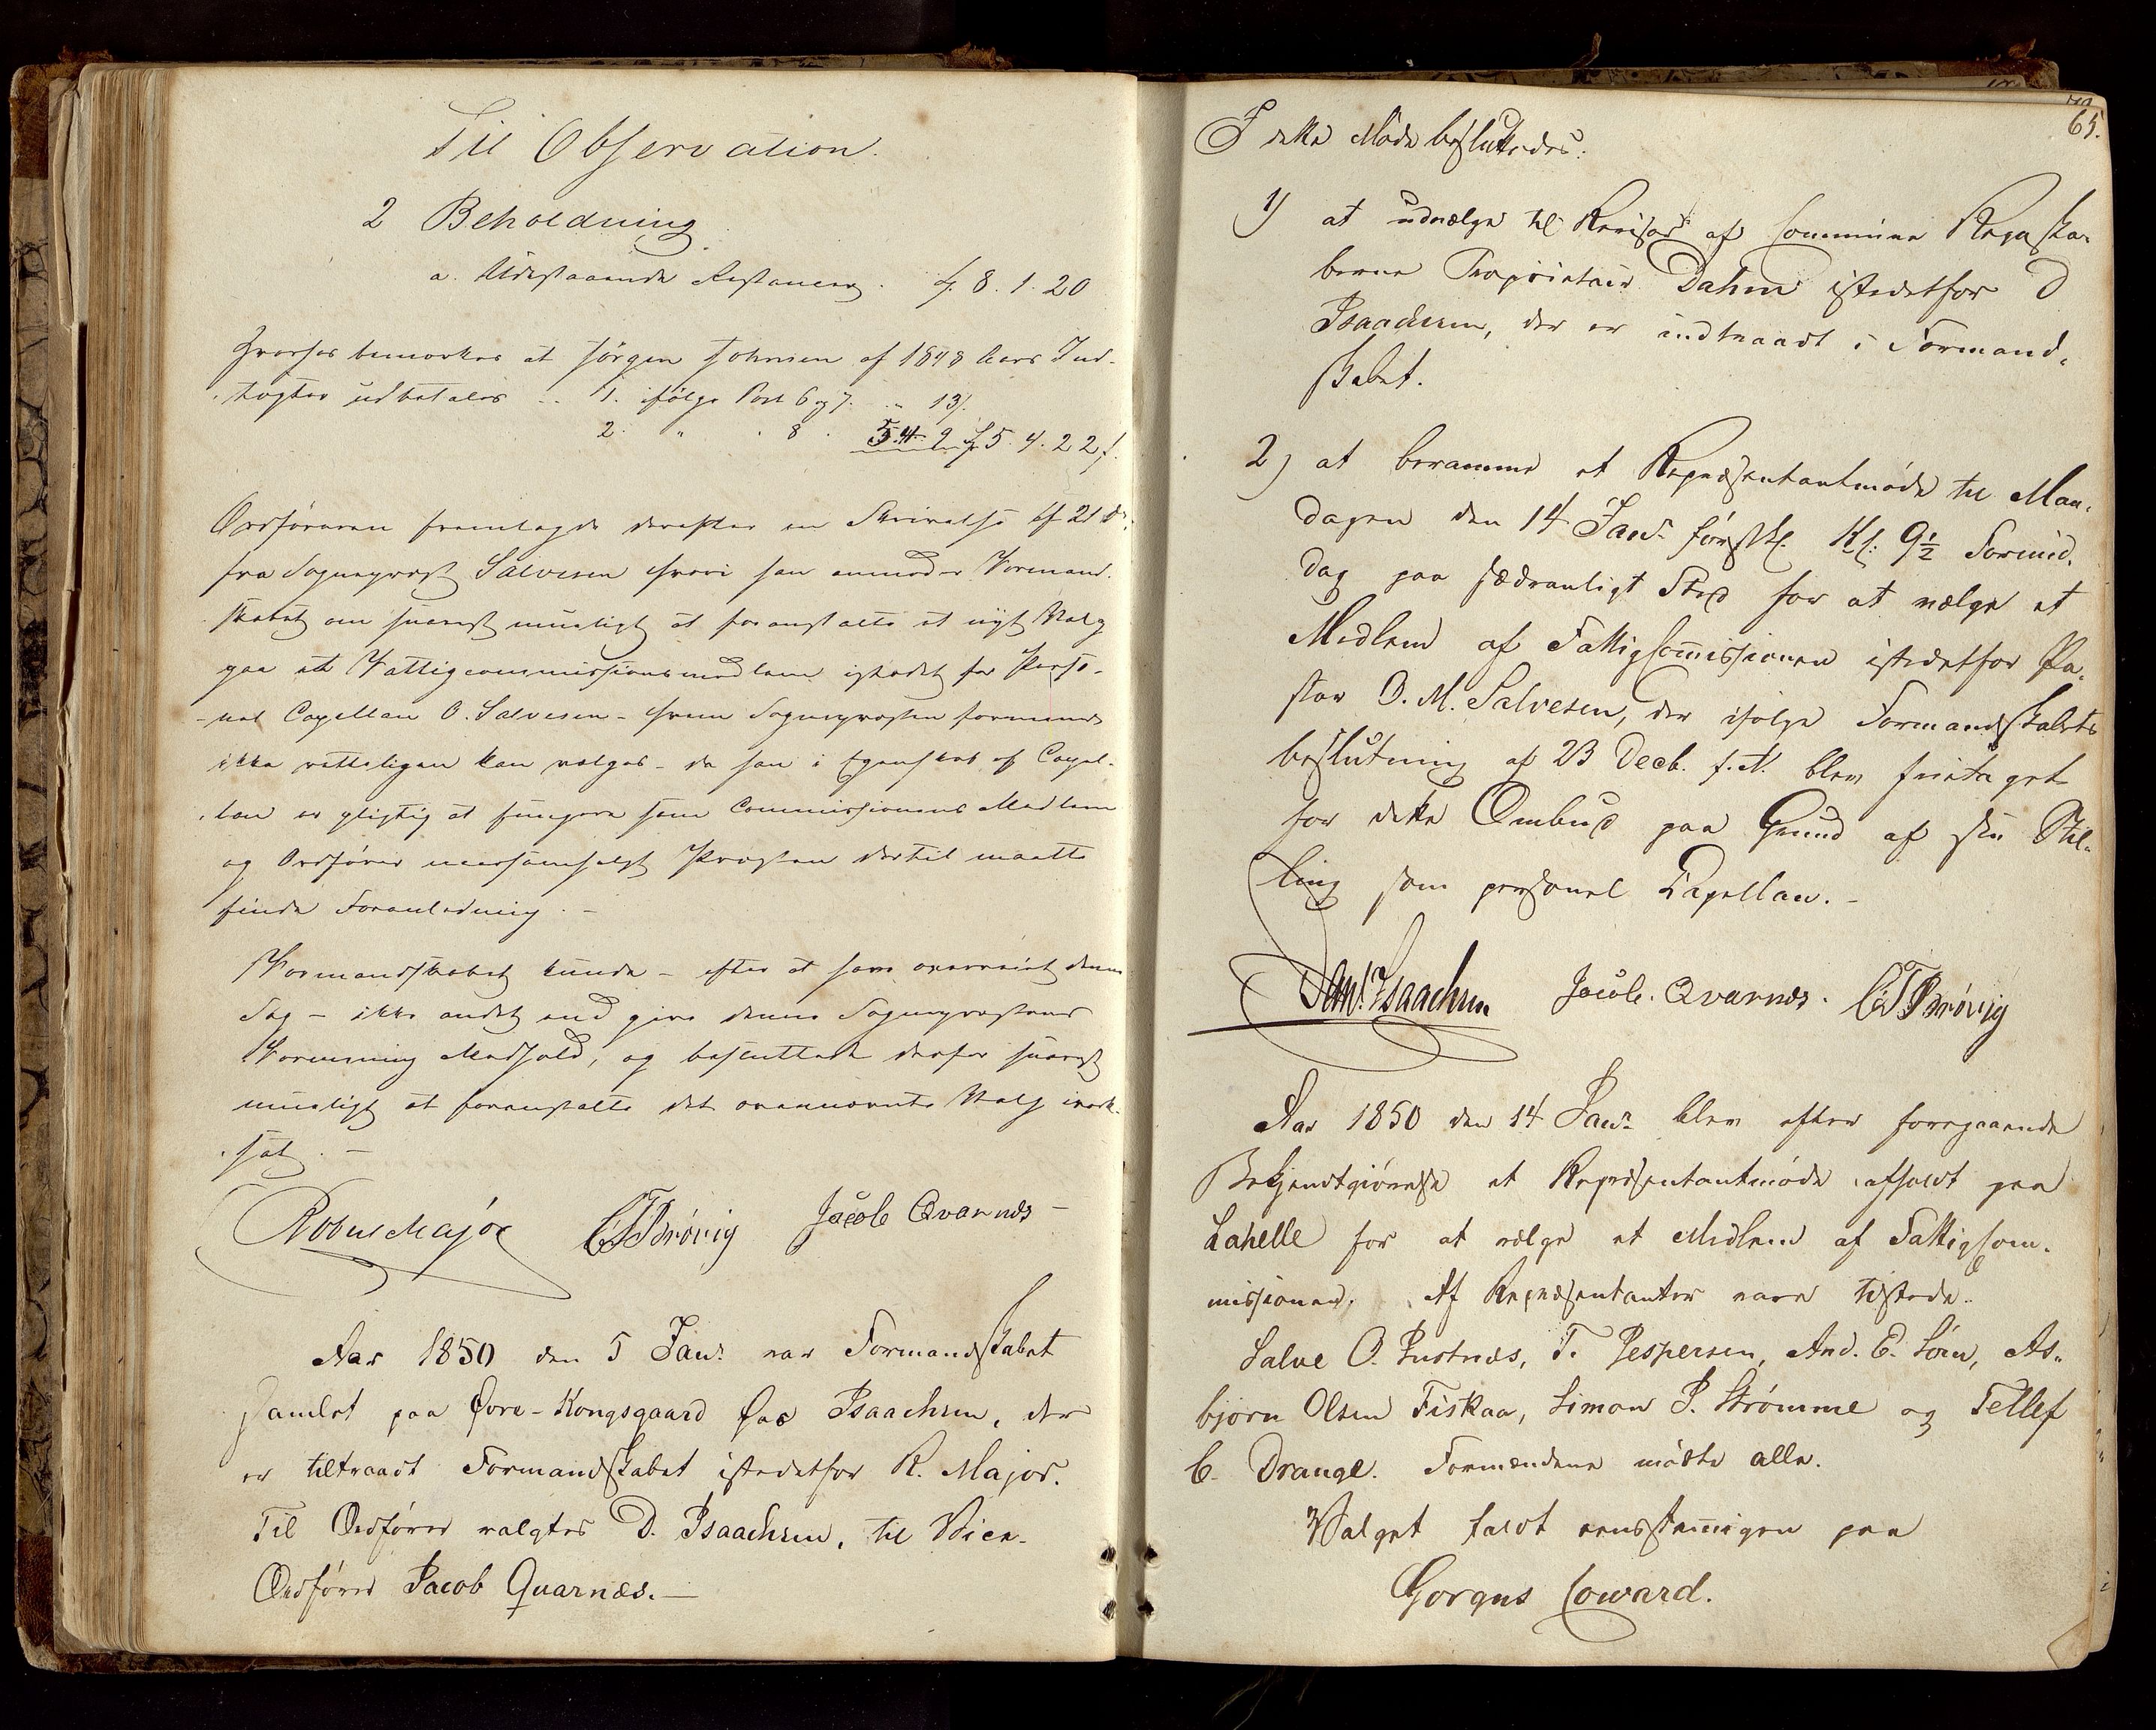 Til Observation.
2 Beholdning
a. Udestaaende Restancer . 8. 1. 20
Hvorhos bemærkes at Jörgen Johnsen af 1848 Aars Ind-
tægter udbetales .. 1. ifölge Post 6 og 7. " 13/.
2. " . 8 . 9 5. 4. 22
Ordföreren fremlagde derefter en Skrivelse af 21 d.
fra Sogneprest Salvesen hvori han anmoder Formand-
skabet om snarest mueligt at foranstalte et nyt Valg
paa et Fattigcommissionsmedlem istedet for Perso-
nel Capellan O. Salvesen - hvem Sognepresten formener
ikke retteligen kan vælges - da han i Egenskab af Capel-
lan er pligtig at fungere som Commissionens Medlem
og Ordförer naarsomhelst Præsten dertil maatte
finde Foranledning. -
Formandskabet kunde - efter at have overveiet denne
Sag - ikke andet end give denne Sogneprestens
Formening Medhold, og besluttede derfor snarest
mueligt at foranstalte det ovennævnte Valg iværk-
sat. -
Robus Major Brövig Jacob Qvarnæs -
Aar 1850 den 5 Janr. var Formandskabet
samlet paa Övre-Kongsgaard hos Isaachsen, der
er tiltraadt Formandskabet istedetfor R. Major.
Til Ordförer valgtes D. Isaachsen, til Vice-
Ordförer Jacob Quarnæs. -
65.
I dette Möde besluttedes:
1) at udvælge til Revisor af Commune Regnska-
berne Proprietair Dahm istedetfor D
Isaachsen, der er indtraadt i Formand-
skabet.
2) at beramme et Repræsentantmöde til Man-
dagen den 14 Janr. förstk. Kl. 9½ Formid-
dag paa sædvanligt Sted for at vælge et
Medlem af Fattigcomissionen istedetfor Pa-
stor O. M. Salvesen, der ifölge Formandskabets
beslutning af 23 Decb. f. A. blev fritaget
for dette Ombud paa Grund af sin Stil-
ling som personel Capellan. -
Danl. Isaachsen Jacob. Qvarnæs. Brövig
Aar 1850 den 14 Janr. blev efter foregaaende
Bekjendtgiörelse et Repræsentantmöde afholdt paa
Lahelle for at vælge et Medlem af Fattigcom-
missionen. Af Repræsentanter vare tilstede.
Salve O. Justnæs, T. Jespersen, And. E. Lörn, As-
björn Olsen Fiskaa, Simon P. Strömme og Tellef
C. Drange. Formændene mödte alle.
Valget faldt eensstemmigen paa
Gorgus Coward.